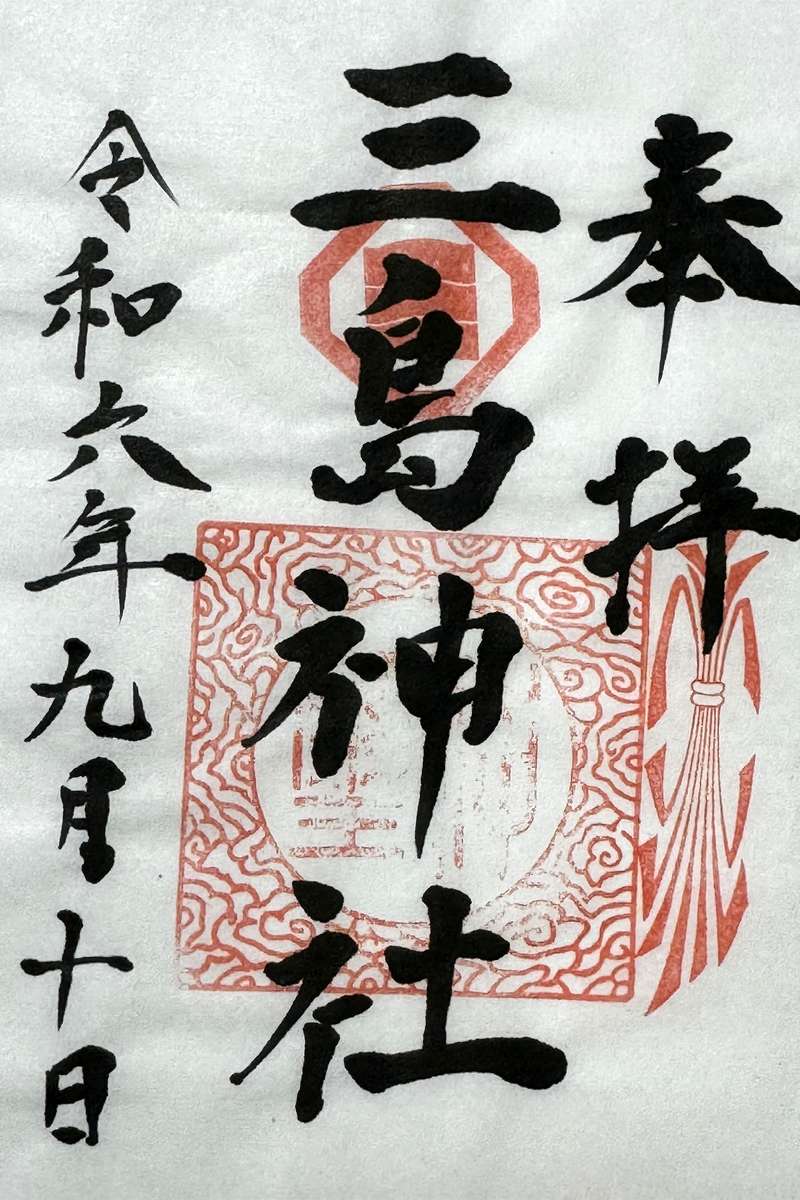 奉拝
三島神社
令和六年九月十日